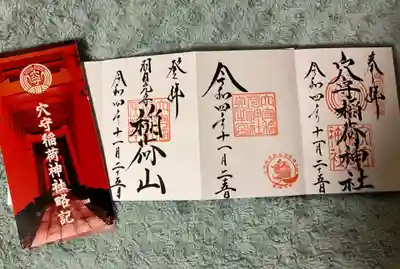 穴守稲荷神社略記
奉拝
穴守稲荷神社
令和四年十一月二十五日
令和四年十一月二十五日
登拝
稲荷山
令和四年十一月二十五日